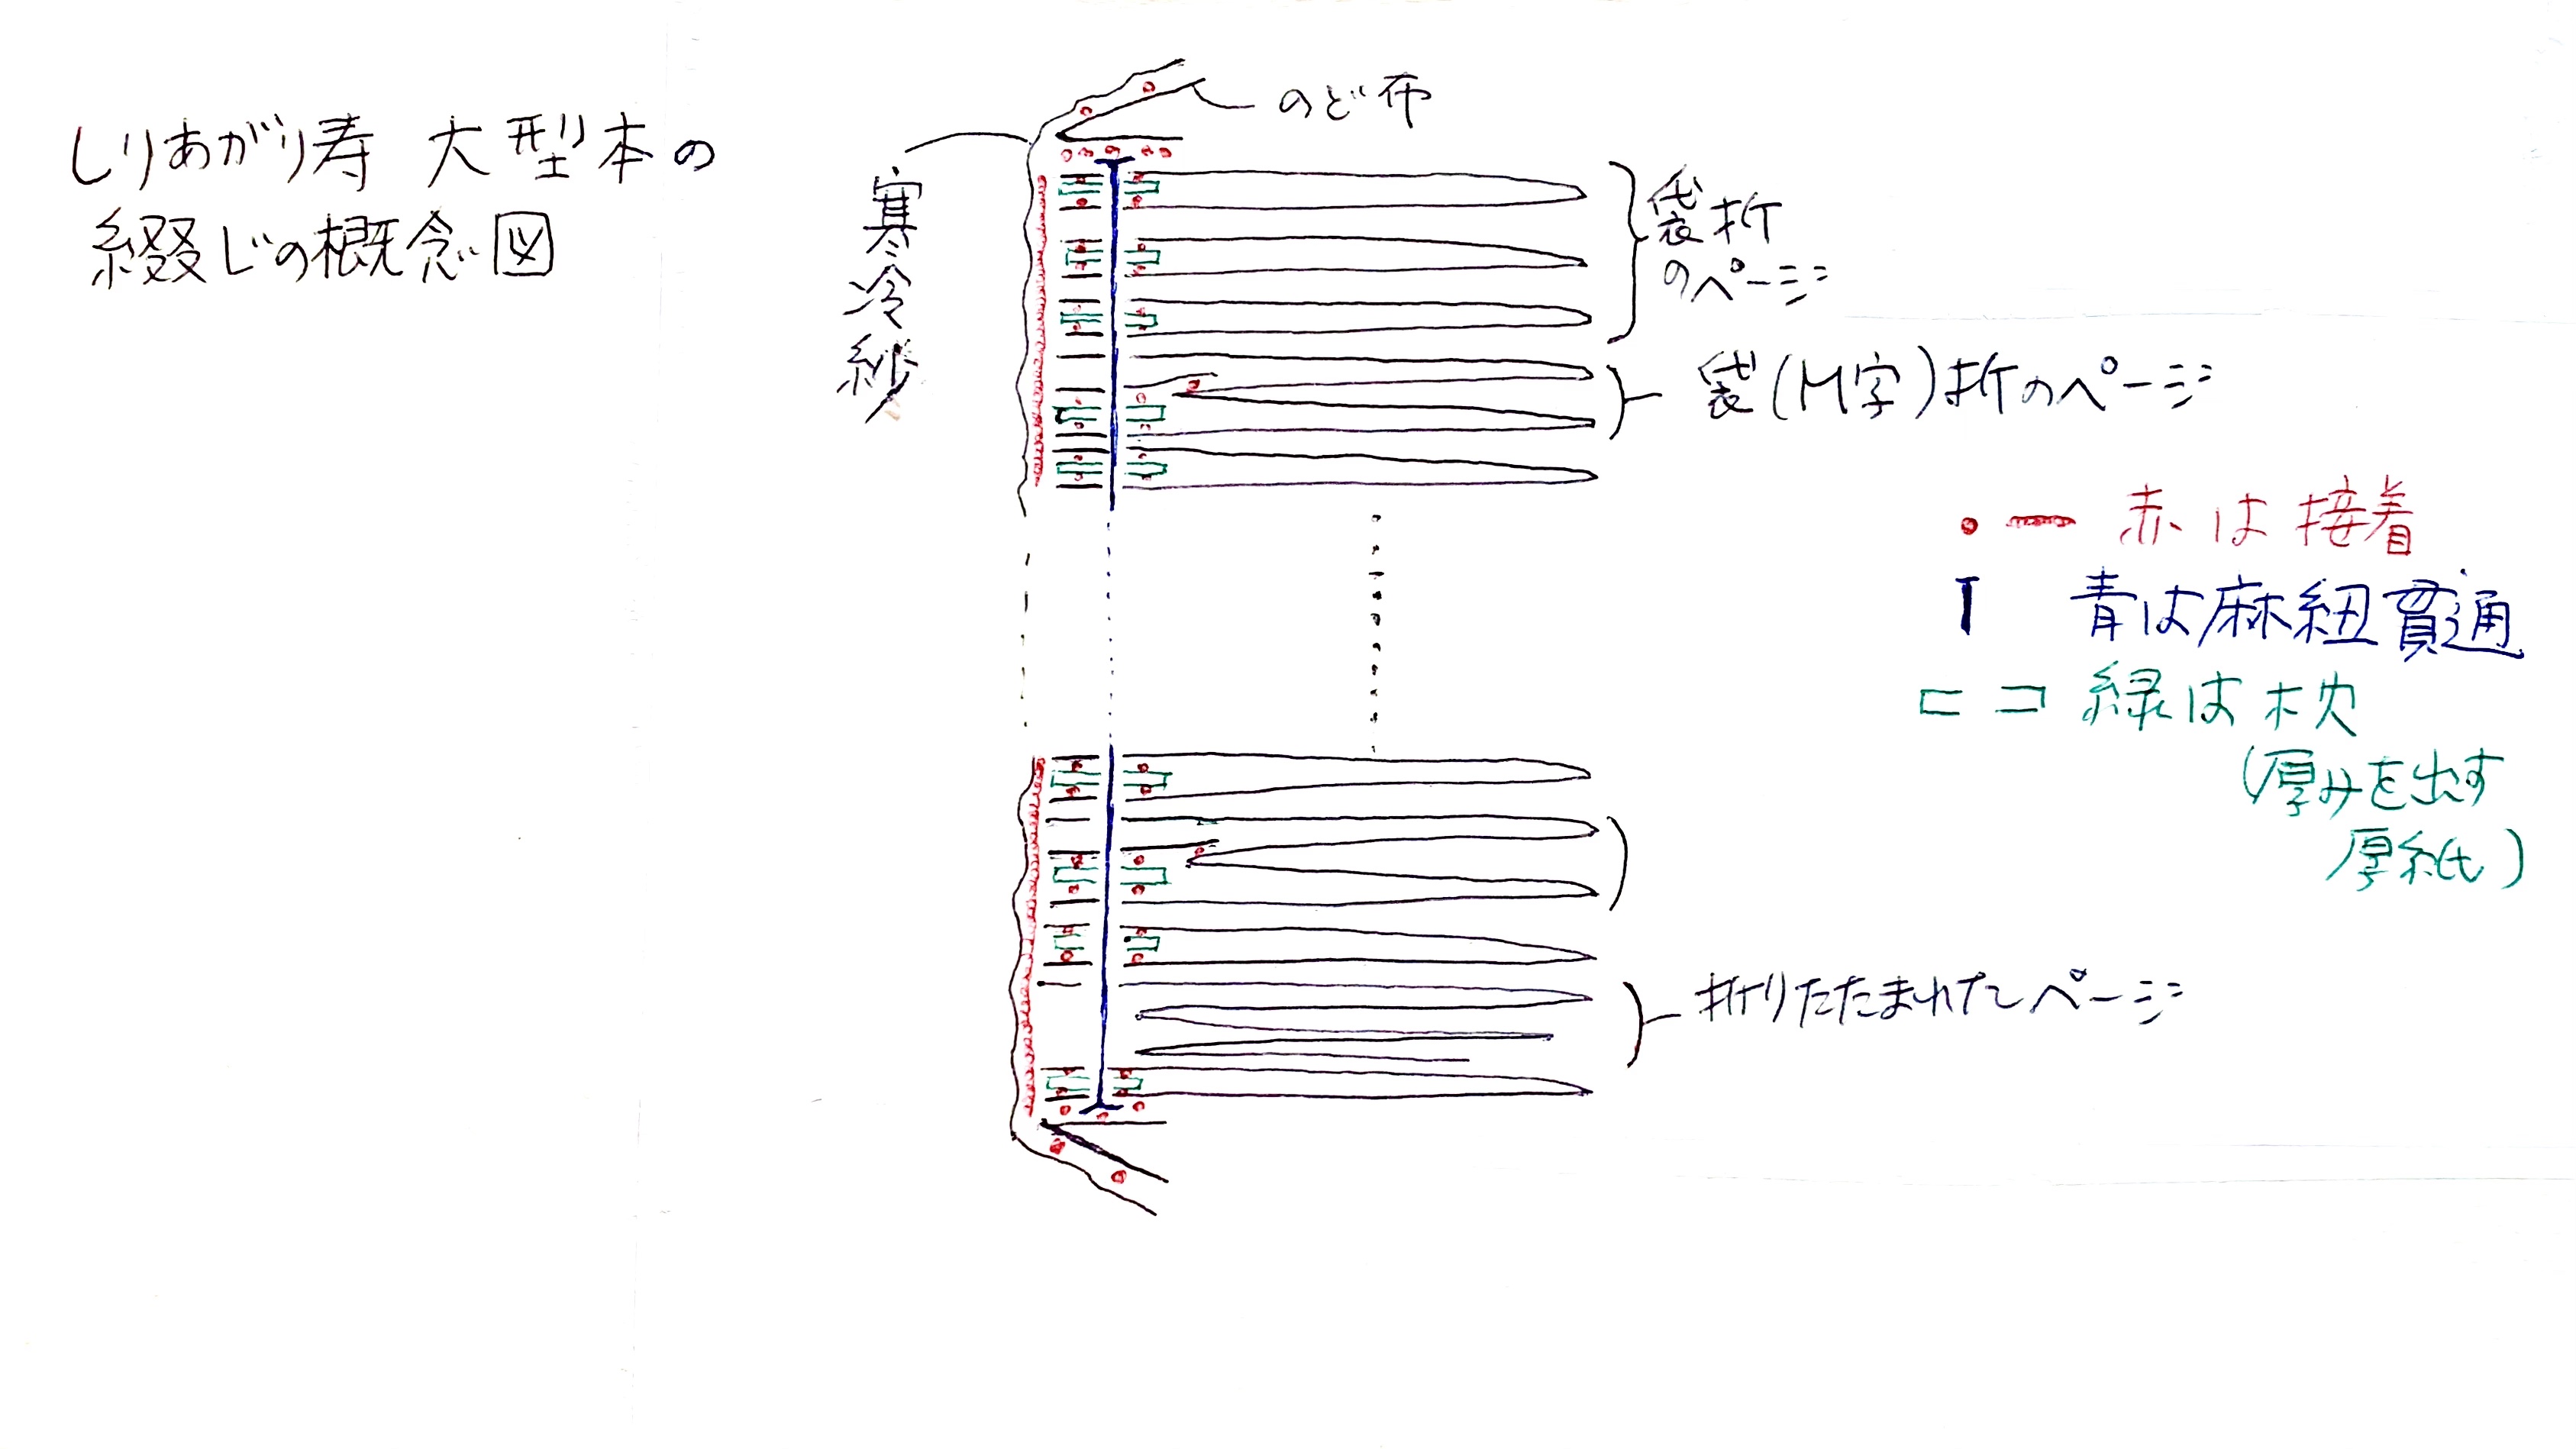 しりあがり寿 大型本の
綴じの概念図
のど布
寒冷紗
袋折
のページ
袋(M字)折のページ
赤は接着
青は麻紐貫通
緑は枕
(厚みを出す
厚紙)
折りたたまれたページ